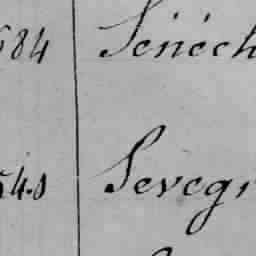 684 Sénéch
540 Sevegr